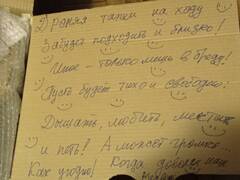 Драняя тапки на ходу
Забудет подходить и близко!
Иные - только лишь в бреду!
Пусть будет тихо и свободно!
Дышать, любить, мечтать
и петь! А может громко...
Как угодно! Когда